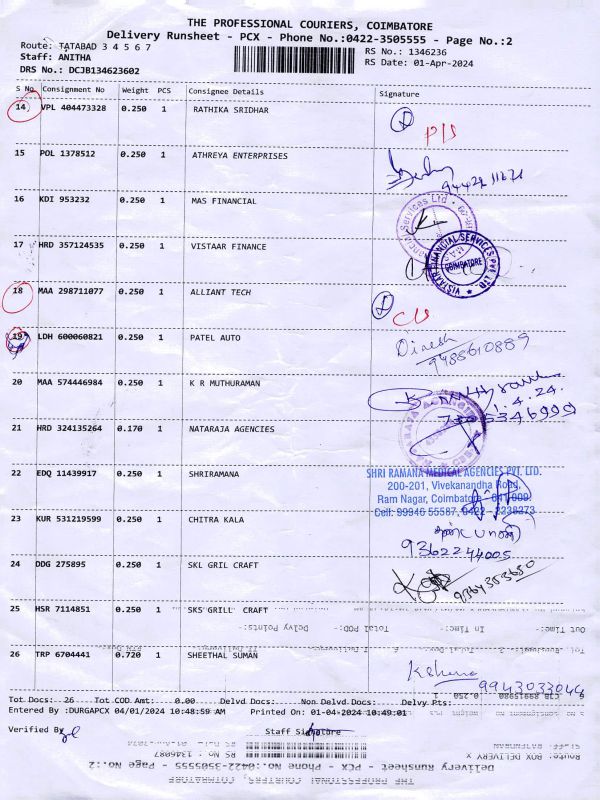 THE PROFESSIONAL COURIERS, COIMBATORE
Delivery Runsheet - PCX - Phone No.:0422-3505555 - Page No.:2
Route: TATABAD 3 4 5 6 7
RS No.: 1346236
Staff: ANITHA
RS Date: 01-Apr-2024
DRS No.: DCJB134623602
S No Consignment No Weight PCS Consignee Details Signature
14 VPL 404473328 0.250 1 RATHIKA SRIDHAR
P/S
15 POL 1378512 0.250 1 ATHREYA ENTERPRISES
16 KDI 953232 0.250 1 MAS FINANCIAL
17 HRD 357124535 0.250 1 VISTAAR FINANCE
VISTAAR FINANCIAL SERVICES PVT. LTD.
COIMBATORE
18 MAA 298711077 0.250 1 ALLIANT TECH
19 LDH 600060821 0.250 1 PATEL AUTO
Dinesh
9488610889
20 MAA 574446984 0.250 1 K R MUTHURAMAN
21 HRD 324135264 0.170 1 NATARAJA AGENCIES
22 EDQ 11439917 0.250 1 SHRIRAMANA
SHRI RAMANA MEDICAL AGENCIES PVT. LTD.
200-201, Vivekanandha Road,
Ram Nagar, Coimbatore - 641 009.
Cell: 99946 55587, 0422 - 2238273
23 KUR 531219599 0.250 1 CHITRA KALA
9362244005
24 DDG 275895 0.250 1 SKL GRIL CRAFT
9364353650
25 HSR 7114851 0.250 1 SKS GRILL CRAFT
26 TRP 6704441 0.720 1 SHEETHAL SUMAN
9943033046
Tot Docs: 26 Tot COD Amt: 0.00 Delvd Docs: Non Delvd Docs: Delvy Pts:
Entered By :DURGAPCX 04/01/2024 10:48:59 AM Printed On: 01-04-2024 10:49:01
Verified By
Staff Signature